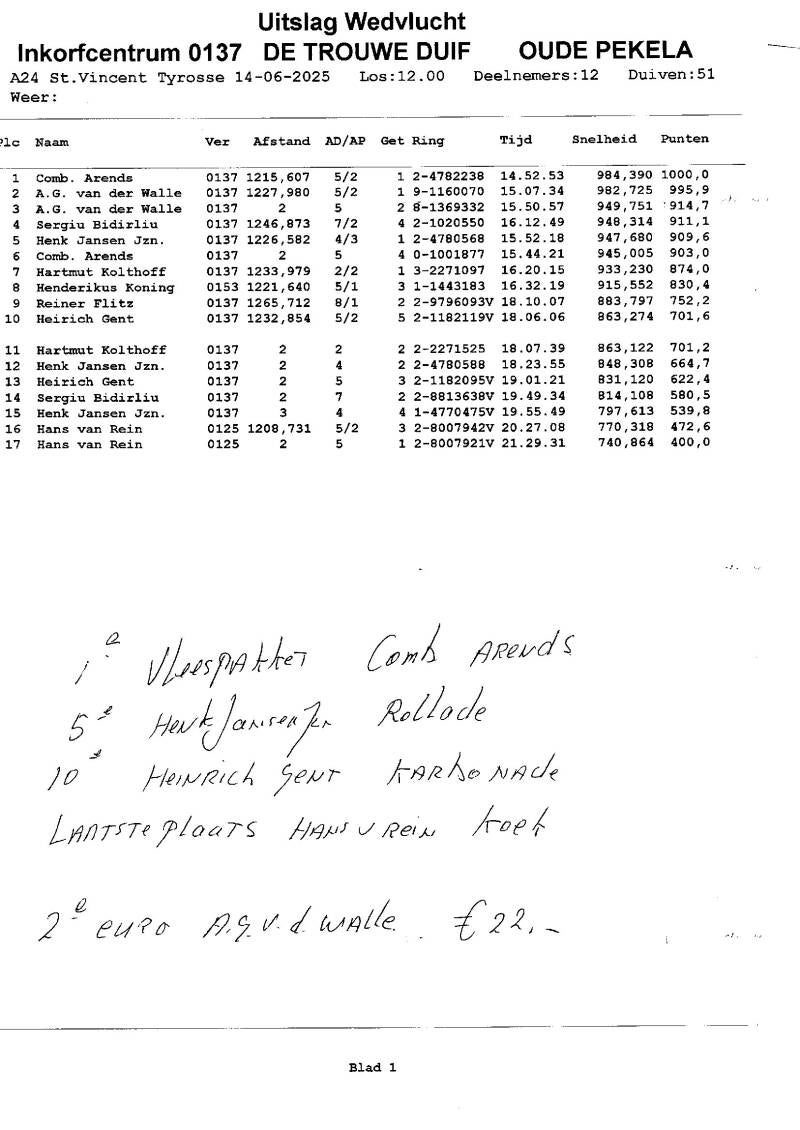 Uitslag Wedvlucht
Inkorfcentrum 0137 DE TROUWE DUIF OUDE PEKELA
A24 St.Vincent Tyrosse 14-06-2025 Los:12.00 Deelnemers:12 Duiven:51
Weer:
Plc Naam Ver Afstand AD/AP Get Ring Tijd Snelheid Punten
1 Comb. Arends 0137 1215,607 5/2 1 2-4782238 14.52.53 984,390 1000,0
2 A.G. van der Walle 0137 1227,980 5/2 1 9-1160070 15.07.34 982,725 995,9
3 A.G. van der Walle 0137 2 5 2 8-1369332 15.50.57 949,751 914,7
4 Sergiu Bidirliu 0137 1246,873 7/2 4 2-1020550 16.12.49 948,314 911,1
5 Henk Jansen Jzn. 0137 1226,582 4/3 1 2-4780568 15.52.18 947,680 909,6
6 Comb. Arends 0137 2 5 4 0-1001877 15.44.21 945,005 903,0
7 Hartmut Kolthoff 0137 1233,979 2/2 1 3-2271097 16.20.15 933,230 874,0
8 Henderikus Koning 0153 1221,640 5/1 3 1-1443183 16.32.19 915,552 830,4
9 Reiner Flitz 0137 1265,712 8/1 2 2-9796093V 18.10.07 883,797 752,2
10 Heirich Gent 0137 1232,854 5/2 5 2-1182119V 18.06.06 863,274 701,6
11 Hartmut Kolthoff 0137 2 2 2 2-2271525 18.07.39 863,122 701,2
12 Henk Jansen Jzn. 0137 2 4 2 2-4780588 18.23.55 848,308 664,7
13 Heirich Gent 0137 2 5 3 2-1182095V 19.01.21 831,120 622,4
14 Sergiu Bidirliu 0137 2 7 2 2-8813638V 19.49.34 814,108 580,5
15 Henk Jansen Jzn. 0137 3 4 4 1-4770475V 19.55.49 797,613 539,8
16 Hans van Rein 0125 1208,731 5/2 3 2-8007942V 20.27.08 770,318 472,6
17 Hans van Rein 0125 2 5 1 2-8007921V 21.29.31 740,864 400,0
1e Vleespakket Comb Arends
5e Henk Jansen Jzn Rollade
10e Heinrich Gent Karbonade
Laatste plaats Hans v Rein Koek
2e euro A.G. v.d. Walle €22,-
Blad 1